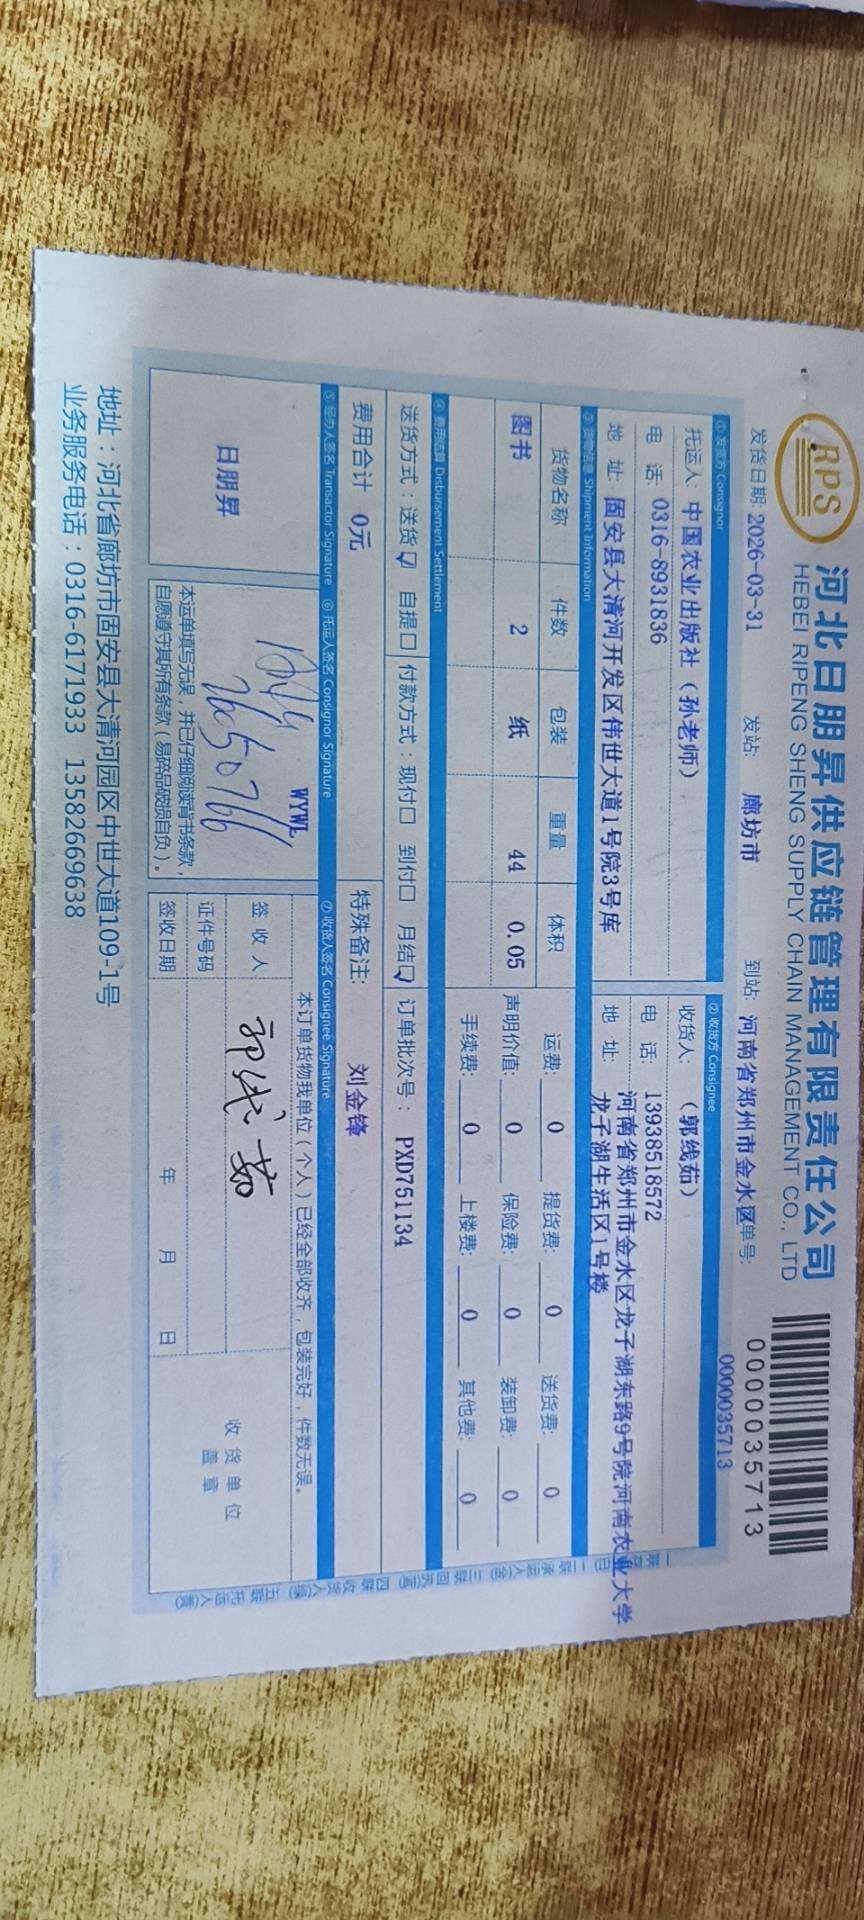 RPS
河北日朋昇供应链管理有限责任公司
HEBEI RIPENG SHENG SUPPLY CHAIN MANAGEMENT CO., LTD
0000035713
发货日期: 2026-03-31 发站: 廊坊市 到站: 河南省郑州市金水区 单号: 0000035713
① 发货方 Consignor ② 收货方 Consignee
托运人: 中国农业出版社（孙老师） 收货人: （郭线茹）
电 话: 0316-8931836 电 话: 13938518572
地 址: 固安县大清河开发区伟世大道1号院3号库 地 址: 河南省郑州市金水区龙子湖东路9号院河南农业大学
龙子湖生活区1号楼
③ 货物信息 Shipment Information
货物名称 件数 包装 重量 体积 运费: 0 提货费: 0 送货费: 0
图书 2 纸 44 0.05 声明价值: 0 保险费: 0 装卸费: 0
手续费: 0 上楼费: 0 其他费: 0
④ 费用结算 Disbursement Settlement
送货方式：送货☑ 自提□ 付款方式：现付□ 到付□ 月结☑ 订单批次号： PXD751134
费用合计 0元 特殊备注: 刘金锋
⑤ 经办人签名 Transactor Signature ⑥ 托运人签名 Consignor Signature ⑦ 收货人签名 Consignee Signature
日朋昇
WYWL
本运单填写无误，并已仔细阅读背书条款，
自愿遵守其所有条款（易碎品破损自负）。
本订单货物我单位（个人）已经全部收齐，包装完好，件数无误。
签 收 人 郭线茹
证件号码
签收日期 年 月 日
收货单位
盖章
地址：河北省廊坊市固安县大清河园区中世大道109-1号
业务服务电话：0316-6171933 13582669638